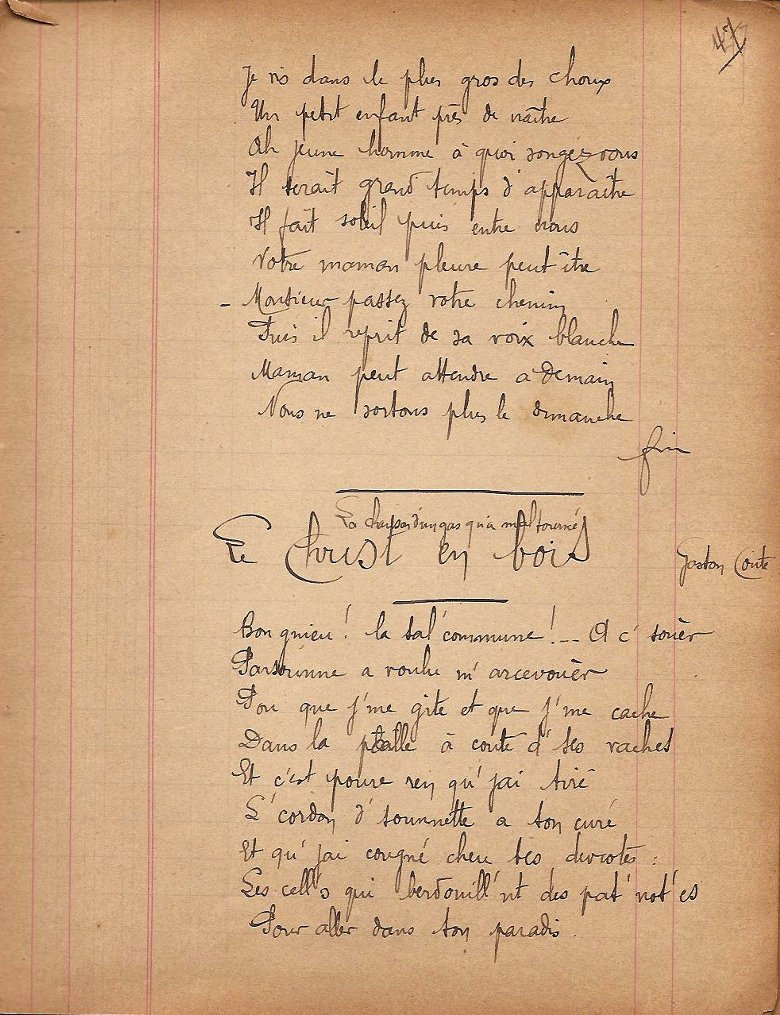 47
Je vis dans le plus gros des choux
Un petit enfant près de naître
Oh jeune homme à quoi songez vous
Il serait grand temps d'apparaître
Il fait soleil puis entre nous
Votre maman pleure peut être
- Monsieur passez votre chemin
Puis il reprit de sa voix blanche
Maman peut attendre a demain
Nous ne sortons plus le dimanche
fin
La chanson d'un gas qu'a mal tourné
Le Christ en bois
Gaston Couté
Bon guieu! la sal' commune! -- A c' souèr
Parsounne a voulu m' arcevouèr
Pou que j'me gite et que j'me cache
Dans la paille à couté d' ses vaches
Et c'est poure ren qu' j'ai tiré
L' cordon d' sounnette a ton curé
Et qu' j'ai cougné cheu tes devotes :
Les cell's qui berdouill'nt des pat'nôt'es
Pour aller dans ton paradis